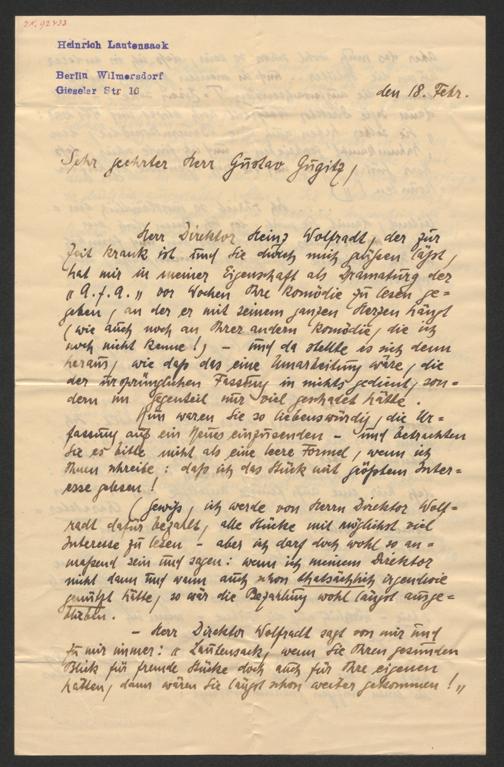 I.N. 92433
Heinrich Lautensack
Berlin Wilmersdorf
Gieseler Str 16
den 18. Febr.
Sehr geehrter Herr Gustav Gugitz,
Herr Direktor Heinz Wolfradt, der zur
Zeit krank ist und Sie durch mich grüßen läßt,
hat mir in meiner Eigenschaft als Dramaturg der
„A.f.A." vor Wochen Ihre Komödie zu lesen ge-
geben, an der er mit seinem ganzen Herzen hängt
(wie auch noch an Ihrer andern Komödie, die ich
noch nicht kenne!) – und da stellte es sich denn
heraus, wie daß das eine Umarbeitung wäre, die
der ursprünglichen Fassung in nichts gedient, son-
dern im Gegenteil nur viel geschadet hätte.
Nun waren Sie so liebenswürdig, die Ur-
fassung auf ein Neues einzusenden – und betrachten
Sie es bitte nicht als eine leere Formel, wenn ich
Ihnen schreibe: daß ich das Stück mit größtem Inter-
esse gelesen!
(Gewiß, ich werde von Herrn Direktor Wolf-
radt dafür bezahlt, alle Stücke mit möglichst viel
Interesse zu lesen – aber ich darf doch wohl so an-
maßend sein und sagen: wenn ich meinem Direktor
nicht dann und wann auch schon thatsächlich irgendwie
genützt hätte, so wär die Bezahlung wohl längst ausge-
blieben.
– Herr Direktor Wolfradt sagt von mir und
zu mir immer: „Lautensack, wenn Sie Ihren gesunden
Blick für fremde Stücke doch auch für Ihre eigenen
hätten, dann wären Sie längst schon weiter gekommen!"